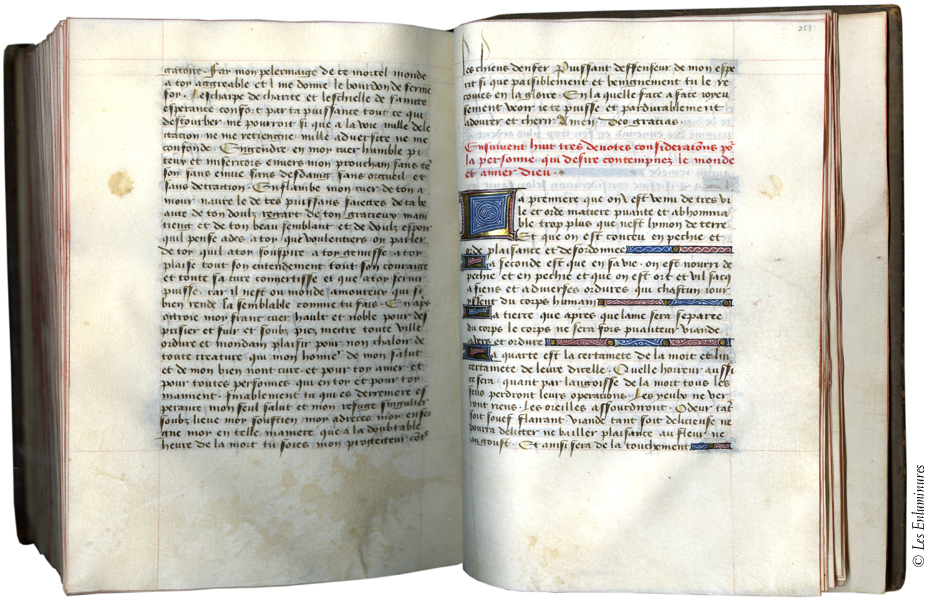 gatoire. Fay mon pelerinaige de ce mortel monde
a toy aggreable et l me donne le bourdon de ferme
foy. Lescharpe de charite et leschielle de
esperance confort par ta puissance tout ce qui
destourber me pourroit si que a la voie nulle dele
ctation ne me retiengne nulle adversite ne me
confonde. Engendre en moy cuer humble pi
teux et misericors envers mon prouchain sans
son sans envie sans desdaing sans orgueil et
sans detraction. Enflambe mon cuer de ton a
mour navre le de tes puissans de ta be
aute de ton doulz regart de ton gracieux main
tieng et de ton beau semblant et de doulz espoir
quil pense adez a toy que voulentiers on parler
de toy quil a toy souspire a toy gemisse a toy
plaise tout son entendement tout son couraige
et toute sa cure convertisse et que a toy servir
puisse. car il nest ou monde amoureux qui si
bien rende la semblable comme tu fais. En
moy franc cuer hault et noble pour des
prisier et fuir et soubz piez mettre toute ville
ordure et mondain plaisir pour non chaloir de
toute creature qui mon honneur de mon salut
et de mon bien nont cure. et pour toy amer et
pour toutes personnes qui en toy et pour toy
mament. finablement tu qui es derreniere es
perance mon seul salut et mon refuge singulier
soubz lieue moy soustien moy adreces moy ensei
gne moy en telle maniere que a la doubtable
heure de la mort tu soies mon protecteur
253
les chiens denfer Puissant deffenseur de mon espe
rit si que paisiblement et benignement tu le re
coives en ta gloire. En la quelle face a face ioyeu
sement veoir ie te puisse et pardurablement
adourer et cherir Amen Deo gracias.
Ensuivent huit tres devotes consideratons po
la personne qui desire contempnez le monde
et amer dieu.
La premiere que on est venu de tres vi
le et orde matiere puante et abhomina
ble trop plus que nest lymon de terre
Et que on est conceu en pechie et
orde plaisance et desordonnee
La seconde est que en sa vie. on est nourri de
pechie et en pechie et que on est ort et vil sacq
a fiens et a diverses ordures qui chascun iour
yssent du corps humain
La tierce que apres que lame sera separee
du corps le corps ne sera fois puanteur viande
a vers et ordure
La quarte est la certainete de la mort et lin
certainete de leure dicelle. Quelle horreur aussi
ce sera. quant par langoisse de la mort tous les
sens perdront leurs operations. Les yeulx ne ver
ront riens. Les oreilles assourdront. Odeur tat
soit souef flairant viande tant soit delicieuse ne
pourra delitter ne bailler plaisance au fleur ne
au goust. Et ainsi sera de la touchement
© Les Enluminures